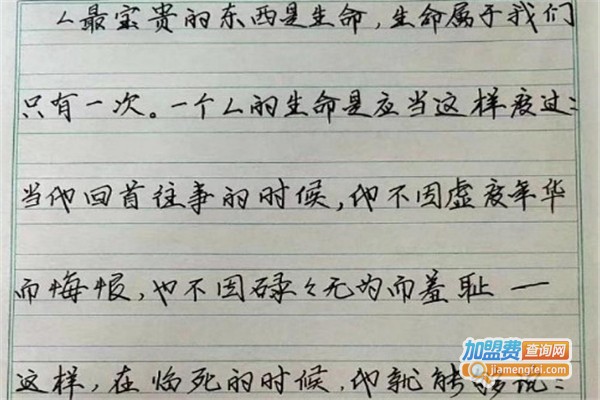 人最宝贵的东西是生命，生命属于我们
只有一次。一个人的生命是应当这样度过：
当他回首往事的时候，他不因虚度年华
而悔恨，也不因碌々无为而羞耻 —
这样，在临死的时候，他就能够说：
加盟费查询网
jiamengfei.com